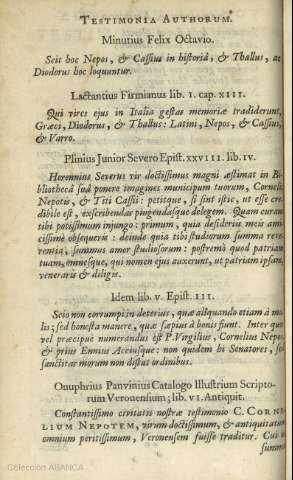 TESTIMONIA AUTHORUM.
Minutius Felix Octavio.
Scit hoc Nepos, & Cassius in historiâ, & Thallus, ac
Diodorus hoc loquuntur.
Lactantius Firmianus lib. I. cap. XIII.
Qui vires ejus in Italia gestas memoriæ tradiderunt,
Græci, Diodorus, & Thallus: Latini, Nepos, & Cassius,
& Varro.
Plinius Junior Severo Epist. XXVIII. lib. IV.
Herennius Severus vir doctissimus magni æstimat in Bi-
bliothecâ suâ ponere imagines municipum tuorum, Cornelii
Nepotis, & Titi Cassii: petitque, si sint istic, ut esse cre-
dibile est, exscribendas pingendasque delegem. Quam curam
tibi potissimum injungo: primum, quia desideriis meis ami-
cissimè obsequeris: deinde quia tibi studiorum summa reve-
rentia, summus amor studiosorum: postremò quod patriam
tuam, omnesque, qui nomen ejus auxerunt, ut patriam ipsam,
veneraris & diligis.
Idem lib. V. Epist. III.
Scio non corrumpi in deterius, quæ aliquando etiam à ma-
lis; sed honesta manere, quæ sæpius à bonis fiunt. Inter quos
vel præcipuè numerandus est P. Virgilius, Cornelius Nepos,
& prius Ennius Acciusque: non quidem hi Senatores, sed
sanctitas morum non distat ordinibus.
Onuphrius Panvinius Catalogo Illustrium Scripto-
rum Veronensium; lib. VI. Antiquit.
Constantissimo civitatis nostræ testimonio C. CORNE-
LIUM NEPOTEM, virum doctissimum, & antiquitatum
omnium peritissimum, Veronensem fuisse traditur. Cui
summus
Colección ABANCA